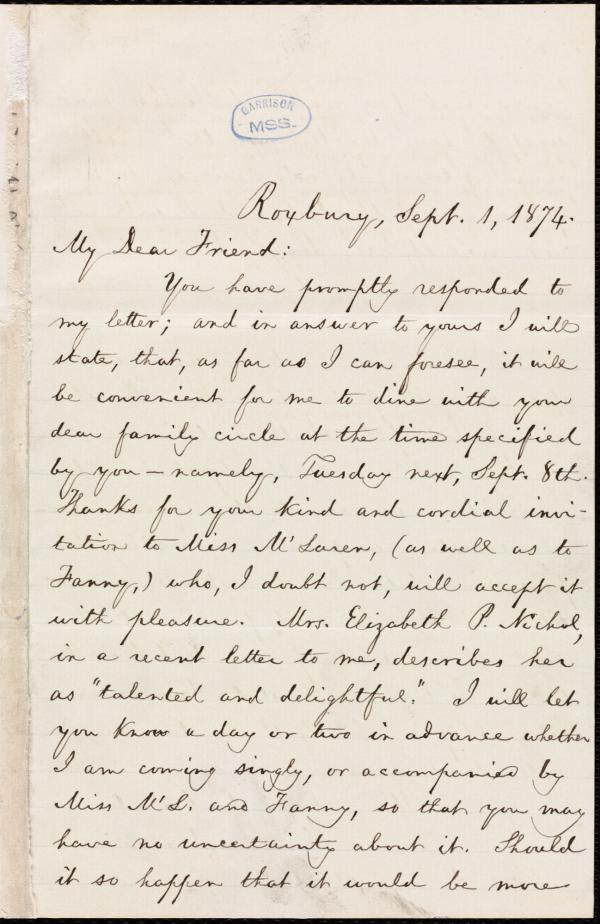 GARRISON
MSS.
Roxbury, Sept. 1, 1874.
My Dear Friend:
You have promptly responded to
my letter; and in answer to yours I will
state, that, as far as I can foresee, it will
be convenient for me to dine with your
dear family circle at the time specified
by you — namely, Tuesday next, Sept. 8th.
Thanks for your kind and cordial invi-
tation to Miss M'Laren, (as well as to
Fanny,) who, I doubt not, will accept it
with pleasure. Mrs. Elizabeth P. Nichol,
in a recent letter to me, describes her
as "talented and delightful." I will let
you know a day or two in advance whether
I am coming singly, or accompanied by
Miss M'L. and Fanny, so that you may
have no uncertainty about it. Should
it so happen that it would be more